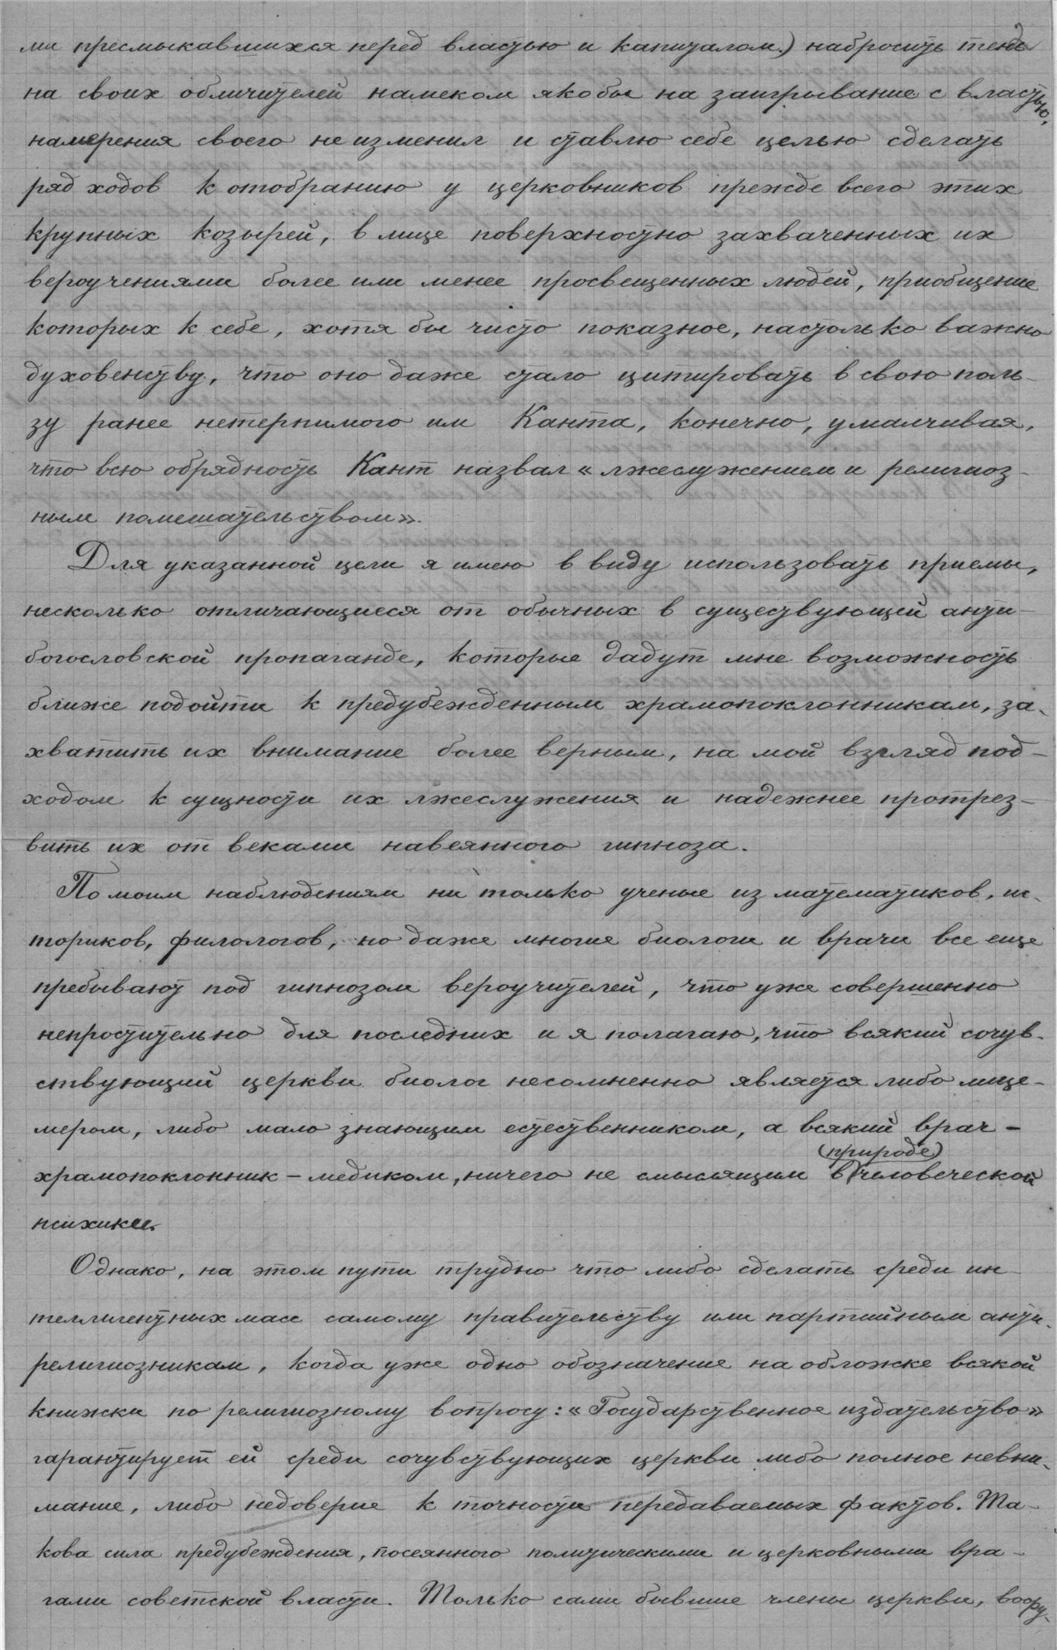 ми пресмыкавшихся перед властью и капиталом.) набросить тень
на своих обличителей намеком якобы на заигрывание с властью,
намерения своего не изменил и ставлю себе целью сделать
ряд ходов к отобранию у церковников прежде всего этих
крупных козырей, в лице поверхностно захваченных их
вероучениями более или менее просвещенных людей, приобщение
которых к себе, хотя бы чисто показное, настолько важно
духовенству, что оно даже стало цитировать в свою поль-
зу ранее нетерпимого им Канта, конечно, умалчивая,
что всю обрядность Кант назвал «лжеслужением и религиоз-
ным помешательством».
Для указанной цели я имею в виду использовать приемы,
несколько отличающиеся от обычных в существующей анти-
богословской пропаганде, которые дадут мне возможность
ближе подойти к предубежденным храмопоклонникам, за-
хватить их внимание более верным, на мой взгляд под-
ходом к сущности их лжеслужения и надежнее протрез-
вить их от веками навеянного гипноза.
По моим наблюдениям ни только ученые из математиков, ис-
ториков, филологов, но даже многие биологи и врачи все еще
пребывают под гипнозом вероучителей, что уже совершенно
непростительно для последних и я полагаю, что всякий сочув-
ствующий церкви биолог несомненно является либо лице-
мером, либо мало знающим естественником, а всякий врач-
храмопоклонник – медиком, ничего не смыслящим в (природе) человеческой
психике.
Однако, на этом пути трудно что либо сделать среди ин-
теллигентных масс самому правительству или партийным анти-
религиозникам, когда уже одно обозначение на обложке всякой
книжки по религиозному вопросу: «Государственное издательство»
гарантирует ей среди сочувствующих церкви либо полное невни-
мание, либо недоверие к точности передаваемых фактов. Та-
кова сила предубеждения, посеянного политическими и церковными вра-
гами советской власти. Только сами бывшие члены церкви, воору-